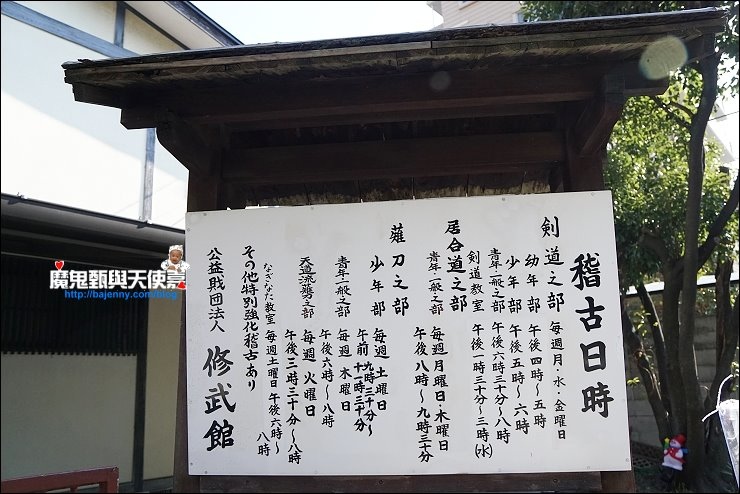 稽古日時
剣道之部 毎週月・水・金曜日
幼年部 午後四時〜五時
少年部 午後五時〜六時
青年一般之部 午後六時三十分〜八時
剣道教室 午後一時三十分〜三時(水)
居合道之部 毎週月曜日・木曜日
青年一般之部 午後八時〜九時三十分
薙刀之部
少年部 毎週土曜日
九時三十分〜
午前十一時三十分
青年一般之部 毎週木曜日
午後六時〜八時
天道流形之部 毎週火曜日
午後三時三十分〜八時
なぎなた教室 毎週土曜日 午後六時〜八時
その他特別強化稽古あり
公益財団法人 修武館
魔鬼甄與天使嘉
http://bajenny.com/blog